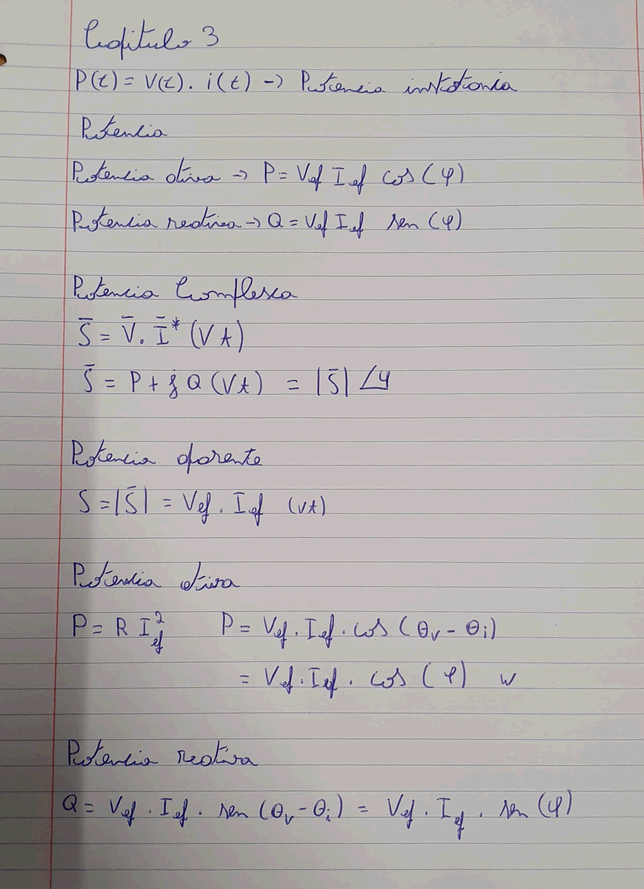 Capitulo 3
P(t) = V(t) . i(t) -> Potencia instatania
Potencia
Potencia ativa -> P = Vef Ief cos (φ)
Potencia reativa -> Q = Vef Ief sen (φ)
Potencia Complexa
S̄ = V̄ . Ī* (VA)
S̄ = P + j Q (VA) = |S̄| ∠φ
Potencia aparente
S = |S̄| = Vef . Ief (VA)
Potencia ativa
P = R I²ef P = Vef . Ief . cos (θv - θi)
= Vef . Ief . cos (φ) W
Potencia reativa
Q = Vef . Ief . sen (θv - θi) = Vef . Ief . sen (φ)